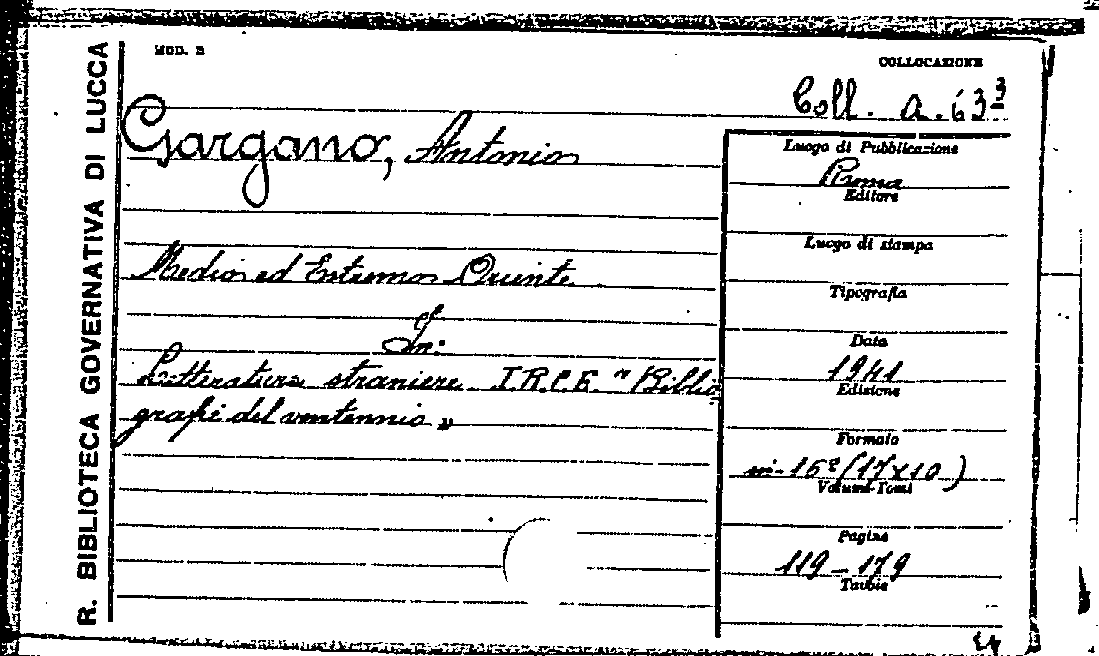 R. BIBLIOTECA GOVERNATIVA DI LUCCA
MOD. B
COLLOCAZIONE
Coll. a. 63³
Gargano, Antonio
Medio ed Estremo Oriente
In:
Letterature straniere I.R.C.E. "Biblio
grafi del ventennio»
Luogo di Pubblicazione
Roma
Editore
Luogo di stampa
Tipografia
Data
1941
Edizione
Formato
in-16º (17x10)
Volumi-Tomi
Pagine
119-179
Tavole